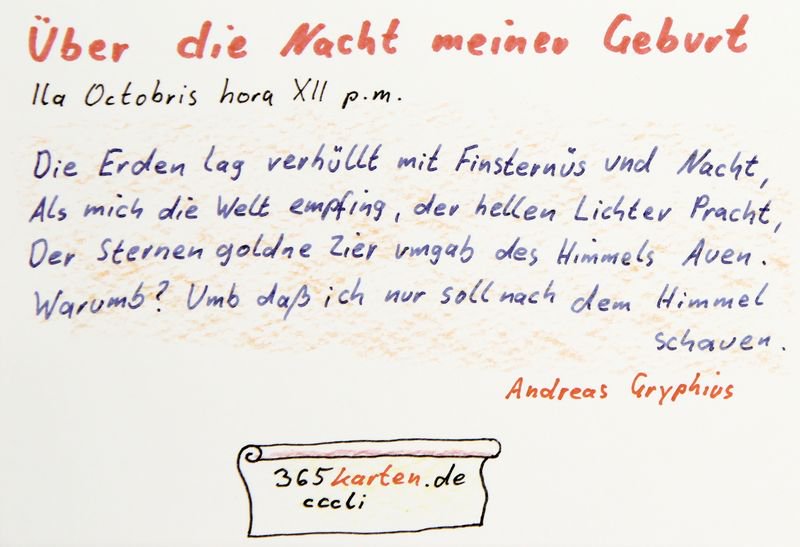 Über die Nacht meiner Geburt
IIa Octobris hora XII p.m.
Die Erden lag verhüllt mit Finsternüs und Nacht,
Als mich die Welt empfing, der hellen Lichter Pracht,
Der Sternen goldne Zier umgab des Himmels Auen.
Warumb? Umb daß ich nur soll nach dem Himmel
schauen.
Andreas Gryphius
365karten.de
cccli